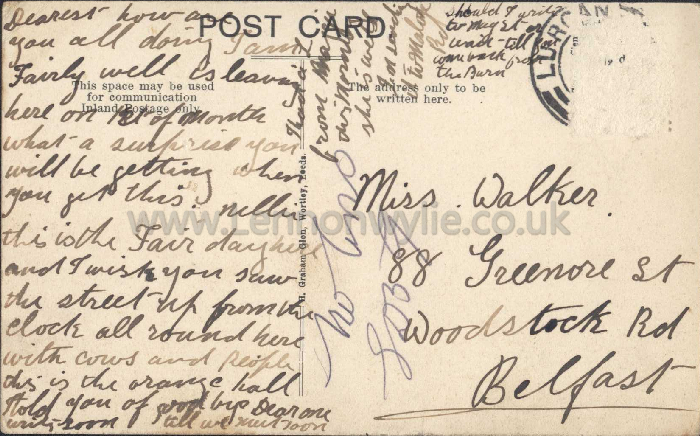 POST CARD.
This space may be used
for communication
Inland Postage only
The address only to be
written here.
H. Graham Glen, Wortley, Leeds.
LURGAN
www.Lennonwylie.co.uk
Dearest how are
you all doing I am
Fairly well is leaving
here on 1st of month
what a surprise you
will be getting when
you get this. nellie
this is the Fair day here
and I wish you saw
the street up from the
clock all round here
with cows and people
this is the orange hall
I told you of good bye Dear one
write soon till we meet soon
had a
from
this morning
she is well
Should I write
to May St or
wait till you
come back from
the Burn
Miss. Walker.
88 Greenore St
Woodstock Rd
Belfast